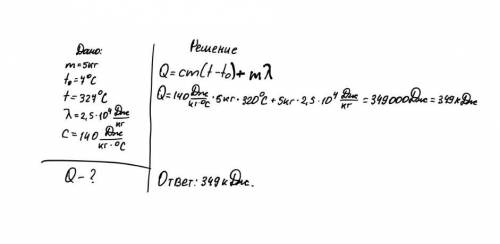 Дано:
m=5кг
t₀=4°C
t=324°C
λ=2,5·10⁴ Дж/кг
C=140 Дж/кг·°C
Q-?
Решение
Q=cm(t-t₀)+mλ
Q=140 Дж/кг·°C·5кг·320°C+5кг·2,5·10⁴ Дж/кг=349000Дж=349кДж
Ответ: 349кДж.